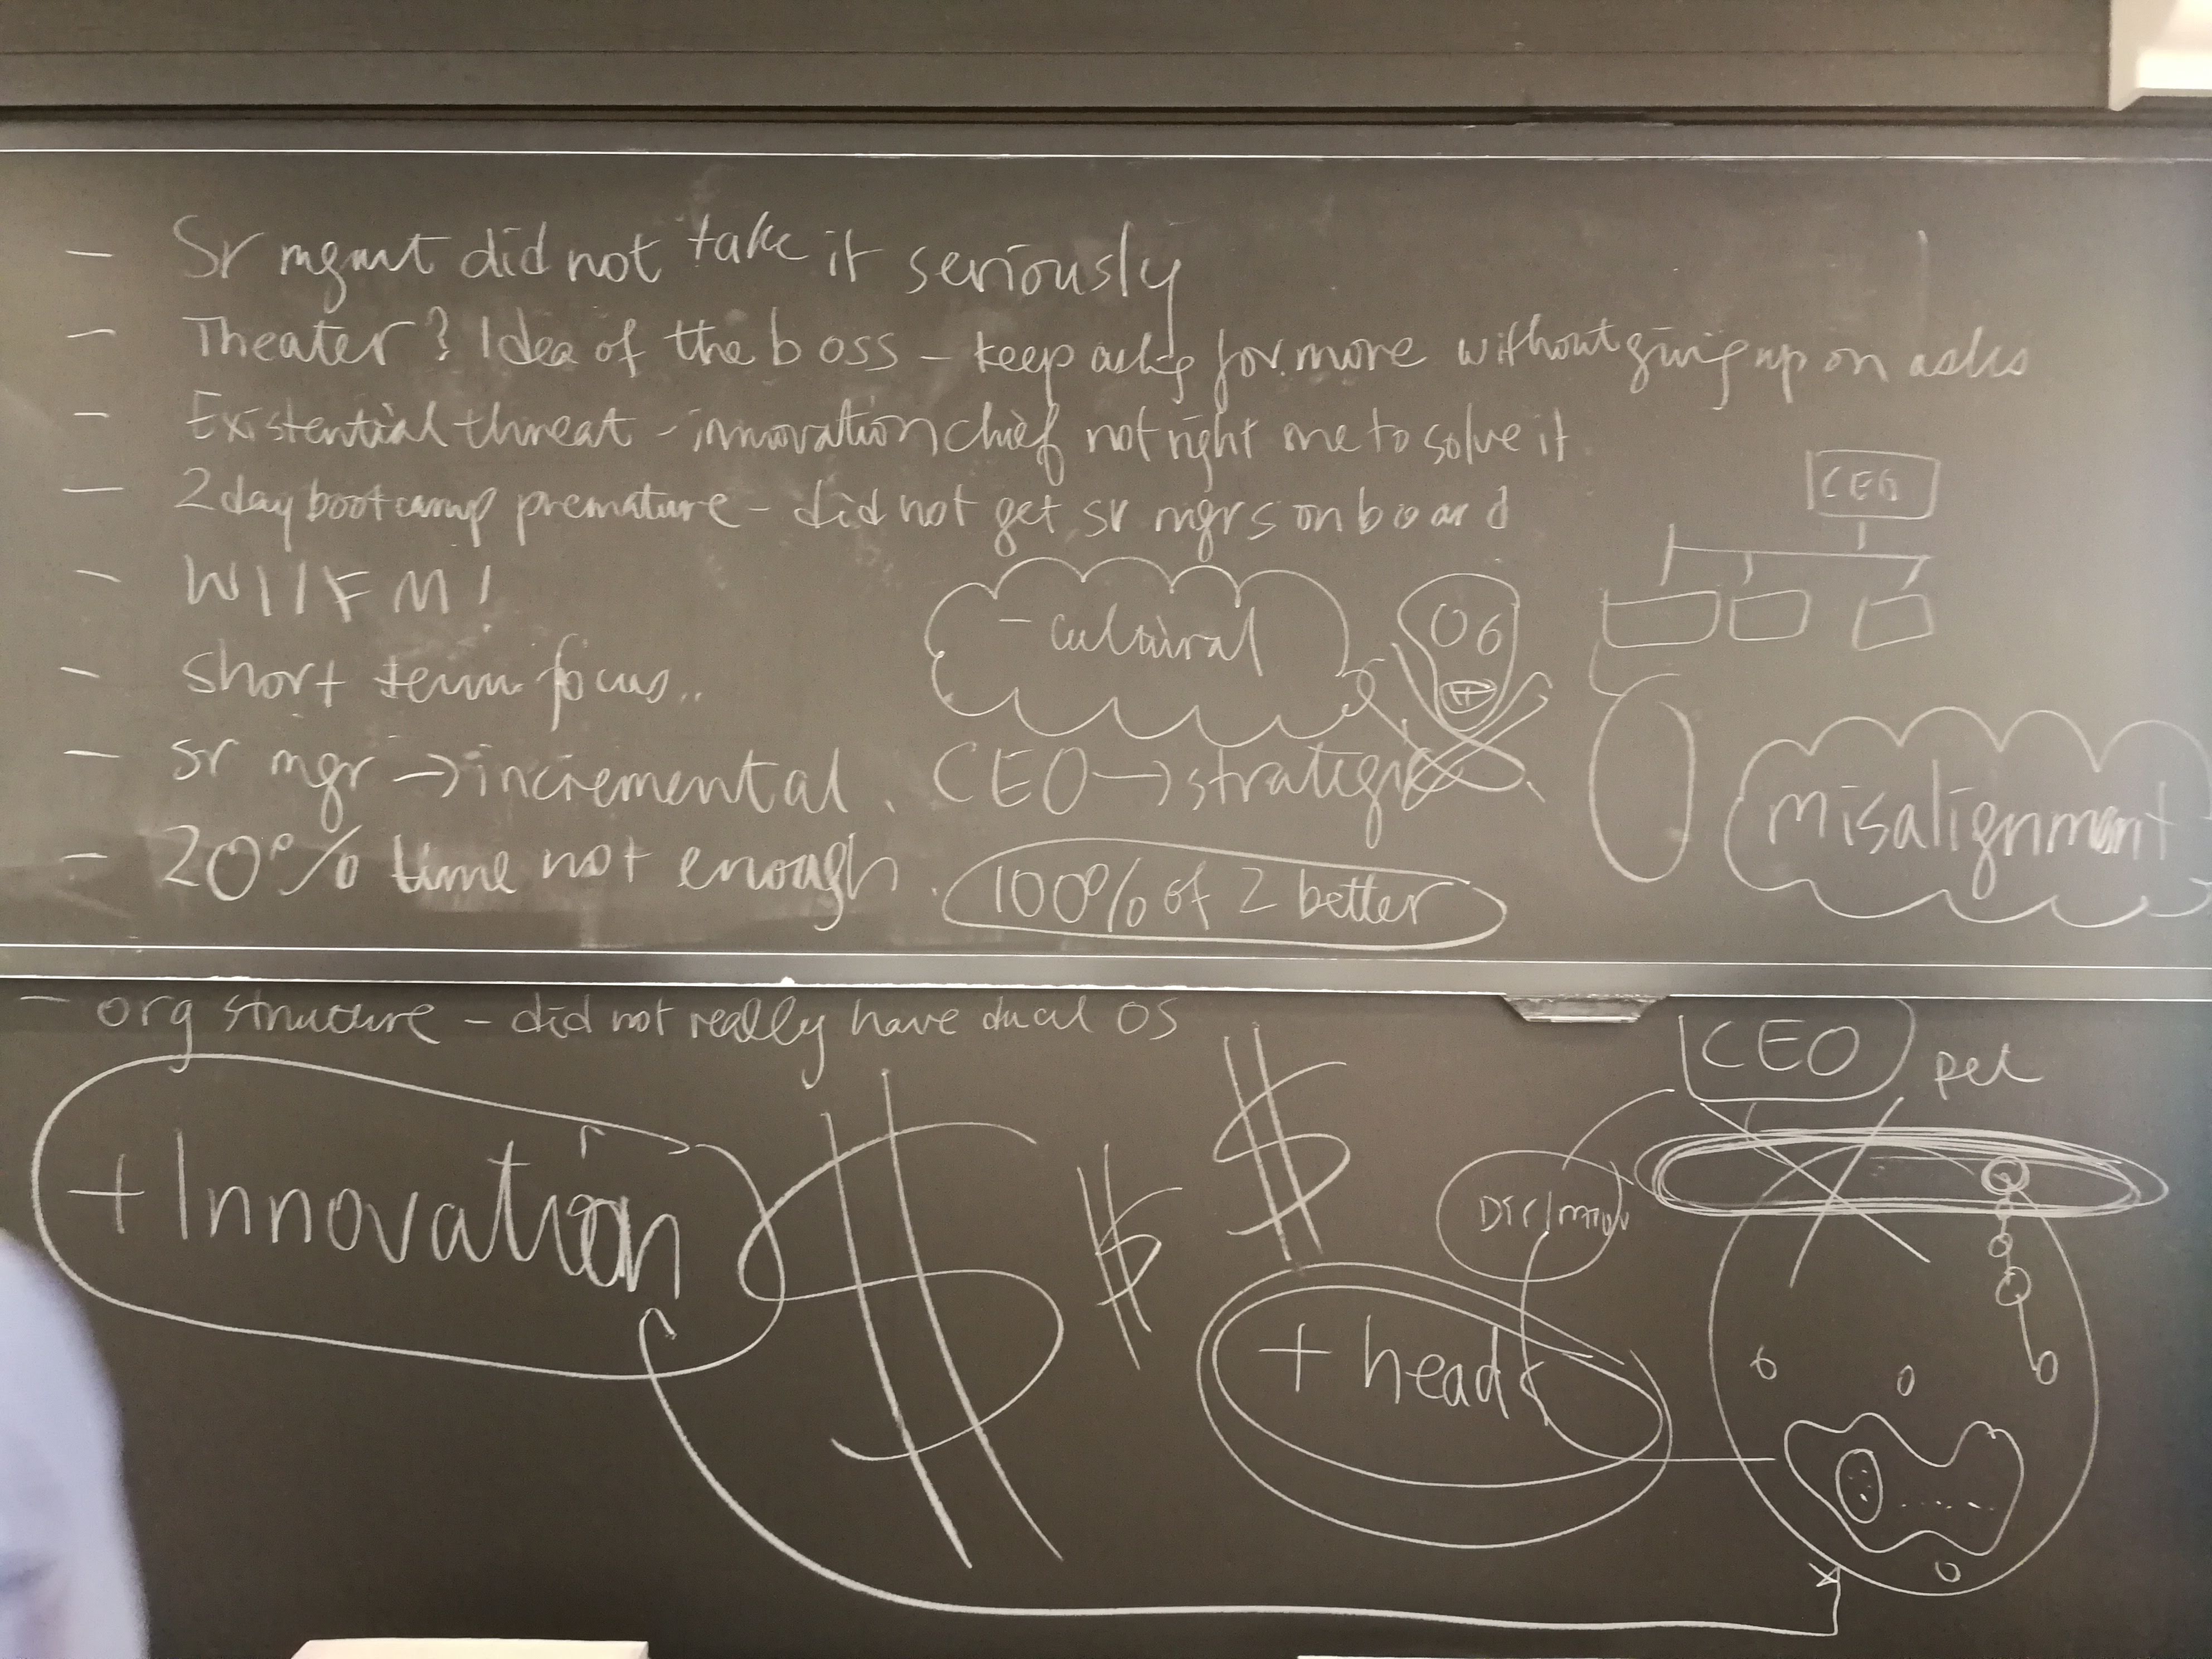 - Sr mgmt did not take it seriously
- Theater? Idea of the boss - keep askg for more without giving up on asks
- Existential threat - innovation chief not right one to solve it.
- 2 day bootcamp premature - did not get sr mgrs on board
- WIIFM!
- short term focus..
- sr mgr → incremental. CEO → strategic
- 20% time not enough. 100% of 2 better
- cultural
CEO
misalignment
- org structure - did not really have dual OS
+ Innovation
$ $ $
+ head
CEO
pet